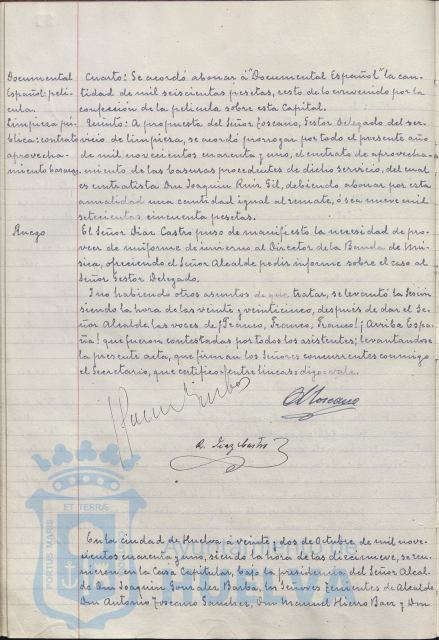 Documental
Español: pelí-
cula.
Limpieza pú-
blica: contrato
aprovecha-
miento basuras
Ruego
Cuarto: Se acordó abonar á "Documental Español" la can-
tidad de mil seiscientas pesetas, resto de lo convenido por la
confección de la película sobre esta Capital.
Quinto: A propuesta del Señor Toscano, Gestor Delegado del ser-
vicio de limpieza, se acordó prorrogar por todo el presente año
de mil novecientos cuarenta y uno, el contrato de aprovecha-
miento de las basuras procedentes de dicho servicio, del cual
es contratista Don Joaquín Ruiz Gil, debiendo abonar por esta
anualidad una cantidad igual al remate, ó sea nueve mil
setecientas cincuenta pesetas.
El Señor Díaz Castro puso de manifiesto la necesidad de pro-
veer de uniforme de invierno al Director de la Banda de Mú-
sica, ofreciendo el Señor Alcalde pedir informe sobre el caso al
Señor Gestor Delegado.
Y no habiendo otros asuntos de que tratar, se levantó la sesión
siendo la hora de las veinte y veinticinco, después de dar el Se-
ñor Alcalde las voces de ¡Franco, Franco, Franco! ¡Arriba Espa-
ña! que fueron contestadas por todos los asistentes; levantándose
la presente acta, que firman los Señores concurrentes conmigo
el Secretario, que certifico = entre líneas = digo = vale.
R. Díaz Castro
PORTUS MARIS
ET TERRÆ
HUELVA
En la ciudad de Huelva á veinte y dos de Octubre de mil nove-
cientos cuarenta y uno, siendo la hora de las diecinueve, se reu-
nieron en la Casa Capitular, bajo la presidencia del Señor Alcal-
de Don Joaquín González Barba, los Señores Tenientes de Alcalde
Don Antonio Toscano Sánchez, Don Manuel Hierro Baez y Don